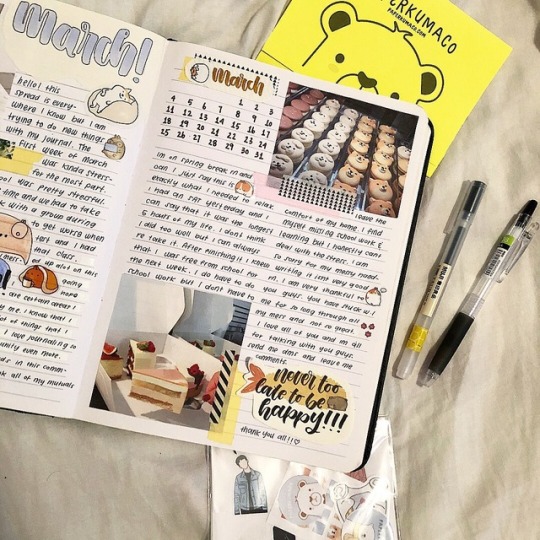 March!
hello! this
spread is every-
where I know but I am
trying to do new things
with my journal. The
first week of March
was kinda stress-
for the most part.
ool was pretty stressful
time and we had to take
k with a group during
to get worse when
test and I had
that class.
going
more
the certain areas
me, I know that I
lot of things that I
I love journaling so
unity even more.
in this comm-
all of my mutuals
march
1 2 3
4 5 6 7 8 9 10
11 12 13 14 15 16 17
18 19 20 21 22 23 24
25 26 27 28 29 30 31
im on spring break rn and
can I just say this is
exactly what I needed to relax
I had an SAT yesterday and I
can say that it was the longest
5 hours of my life. I don't think
I did too well but I can always
re take it. After finishing I knew
I was free from school for
the next week. I do have to do
school work but I don't have to
leave the
comfort of my home. I find
myself missing school work &
learning but I honestly can't
deal with the stress. I am
so sorry for my messy hand.
writing I was very good
at it. I am very thankful to
you guys. You have stuck w/
me for so long through all
my mess and not so good.
I love all of you and im all
for talking with you guys.
send me dms and leave me
comments.
never too
late to be
happy!!!
thank you all!!♡
PERKUMACO
PAPERKUMACO.COM
MUJI